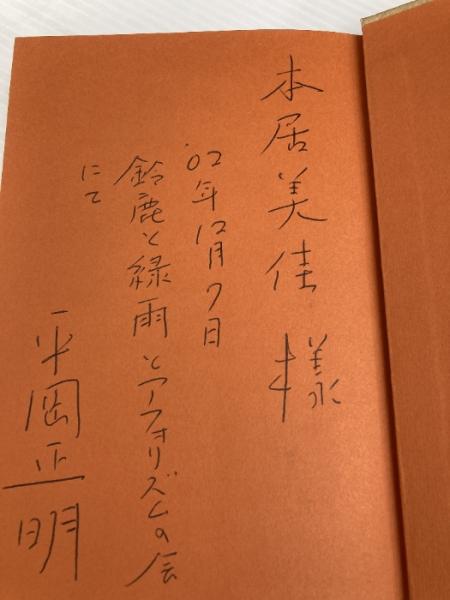 本居美佳様
'02年12月7日
鈴鹿と緑雨とアフォリズムの会
にて
平岡正明